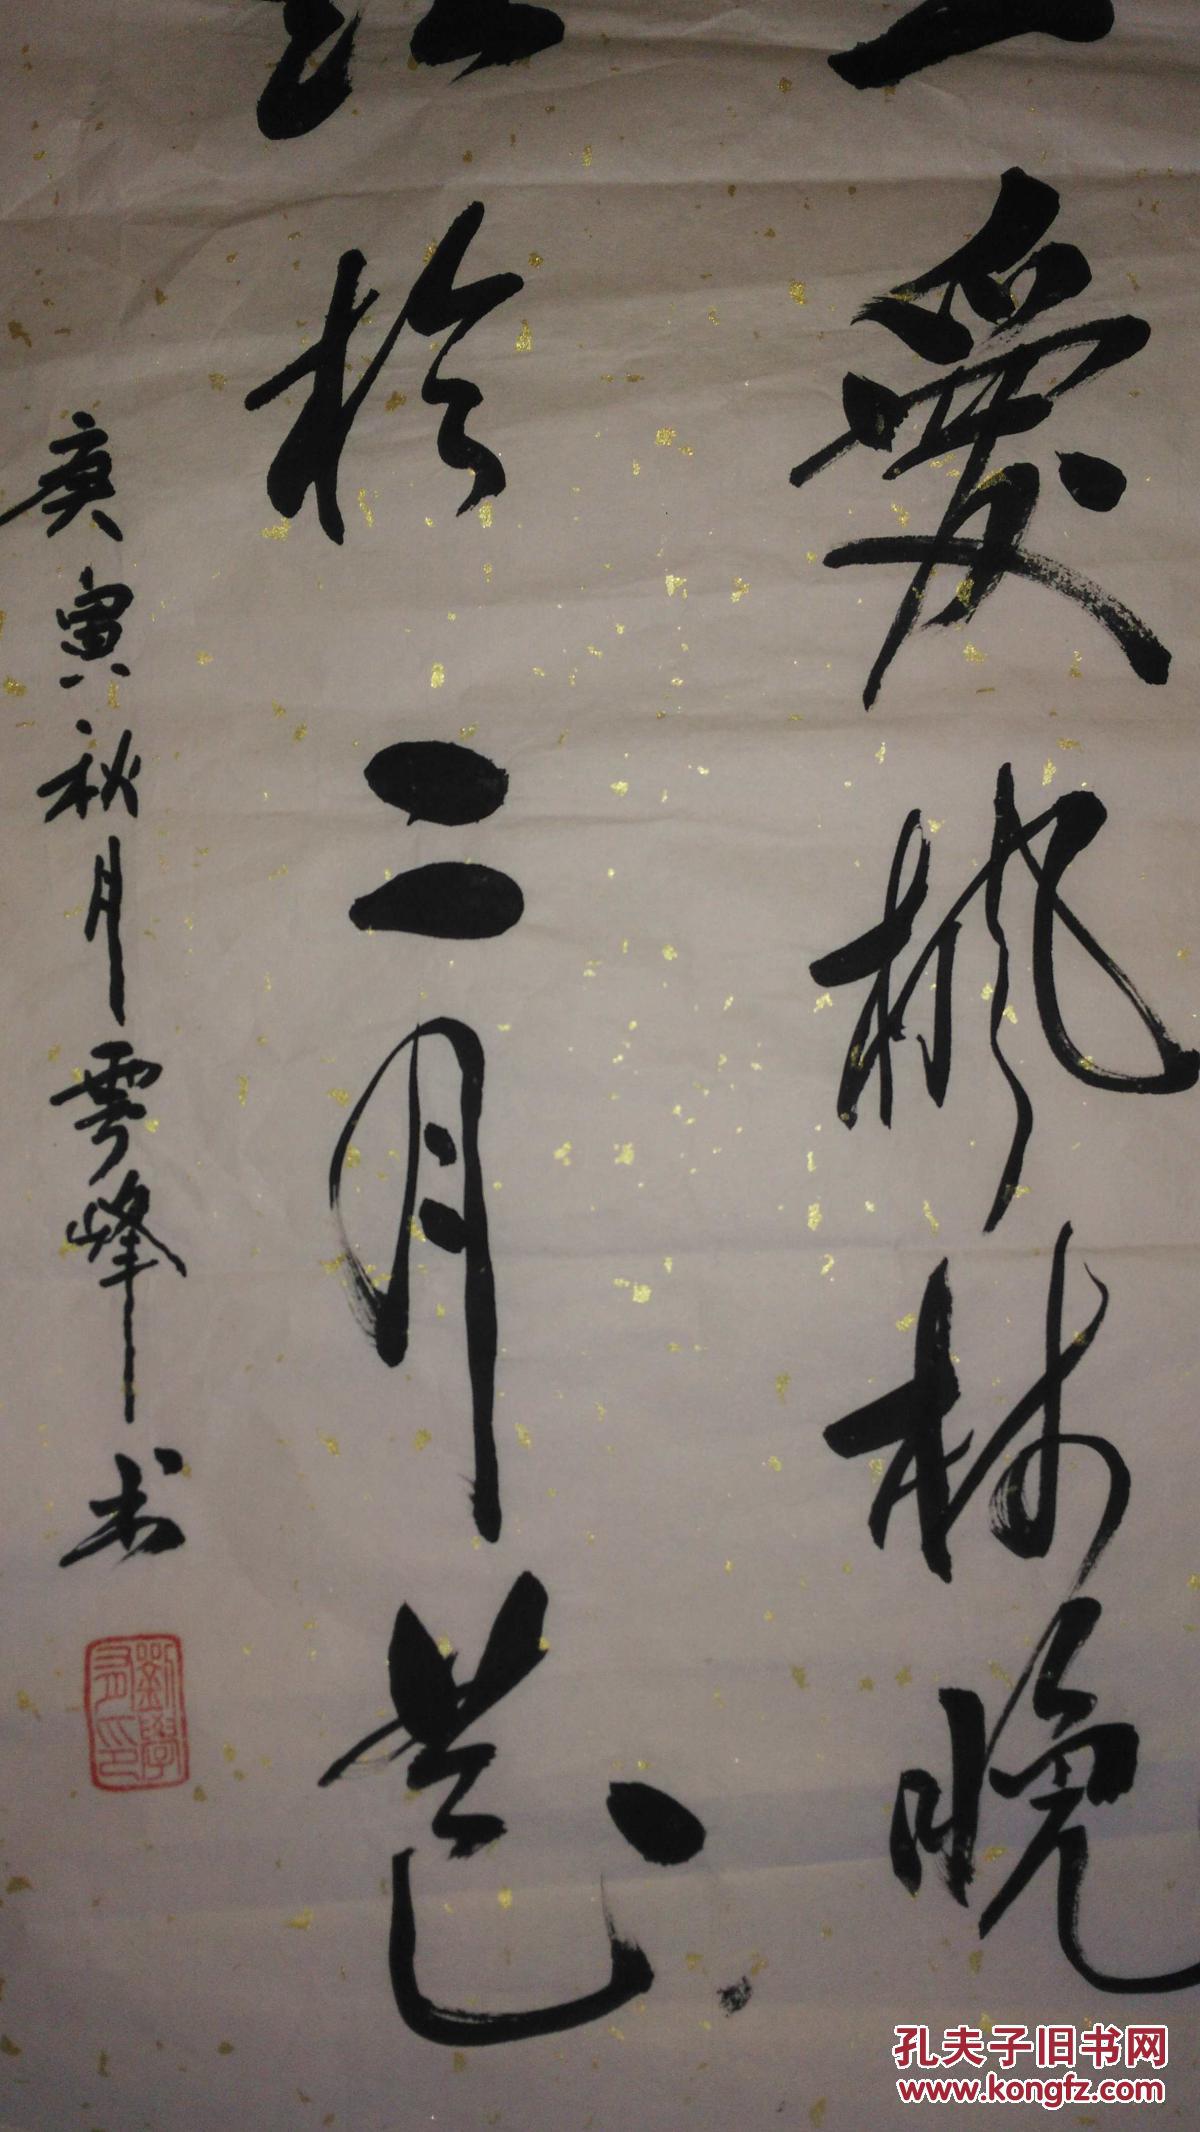 愛楓林晚
於二月花
庚寅秋月雲峰书
劉學
印
孔夫子旧书网
www.kongfz.com